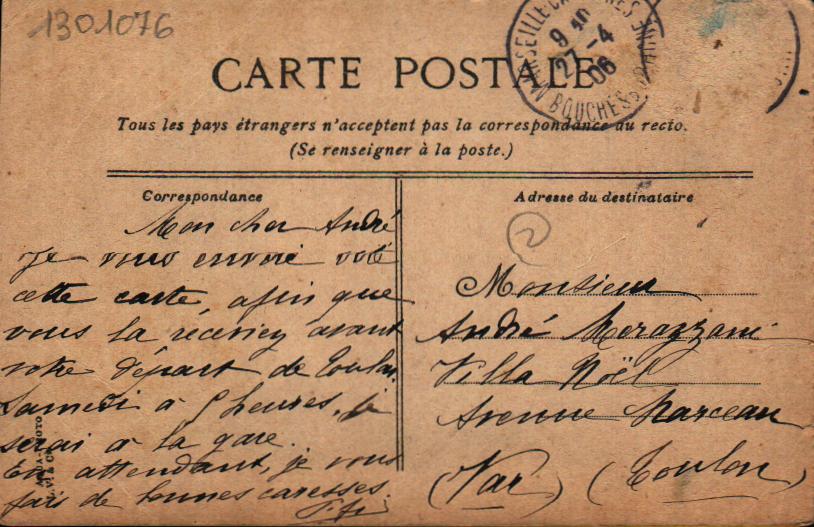 1301076
MARSEILLE
9 40
27-4
06
BOUCHES DU RHONE
CARTE POSTALE
Tous les pays étrangers n'acceptent pas la correspondance au recto.
(Se renseigner à la poste.)
Correspondance
Mon cher André
je vous envoie
cette carte afin que
vous la receviez avant
votre départ de Toulon.
Samedi à 5 heures, je
serai à la gare.
En attendant, je vous
fais de bonnes caresses.
Fifi
Adresse du destinataire
2
Monsieur
André Morazzani
Villa Noël
Avenue Marceau
(Var) (Toulon)